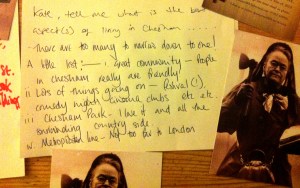 Kate, tell me what is the best
aspect(s) of living in Chesham .......
- There are too many to narrow down to one!
A little list; —
i great community - People
in Chesham really are friendly!
ii Lots of things going on - festival (!)
comedy nights, cinema clubs etc etc.
iii Chesham Park - I love it and all the
surrounding country side.
iv Metropolitan line - Not too far to London
St.